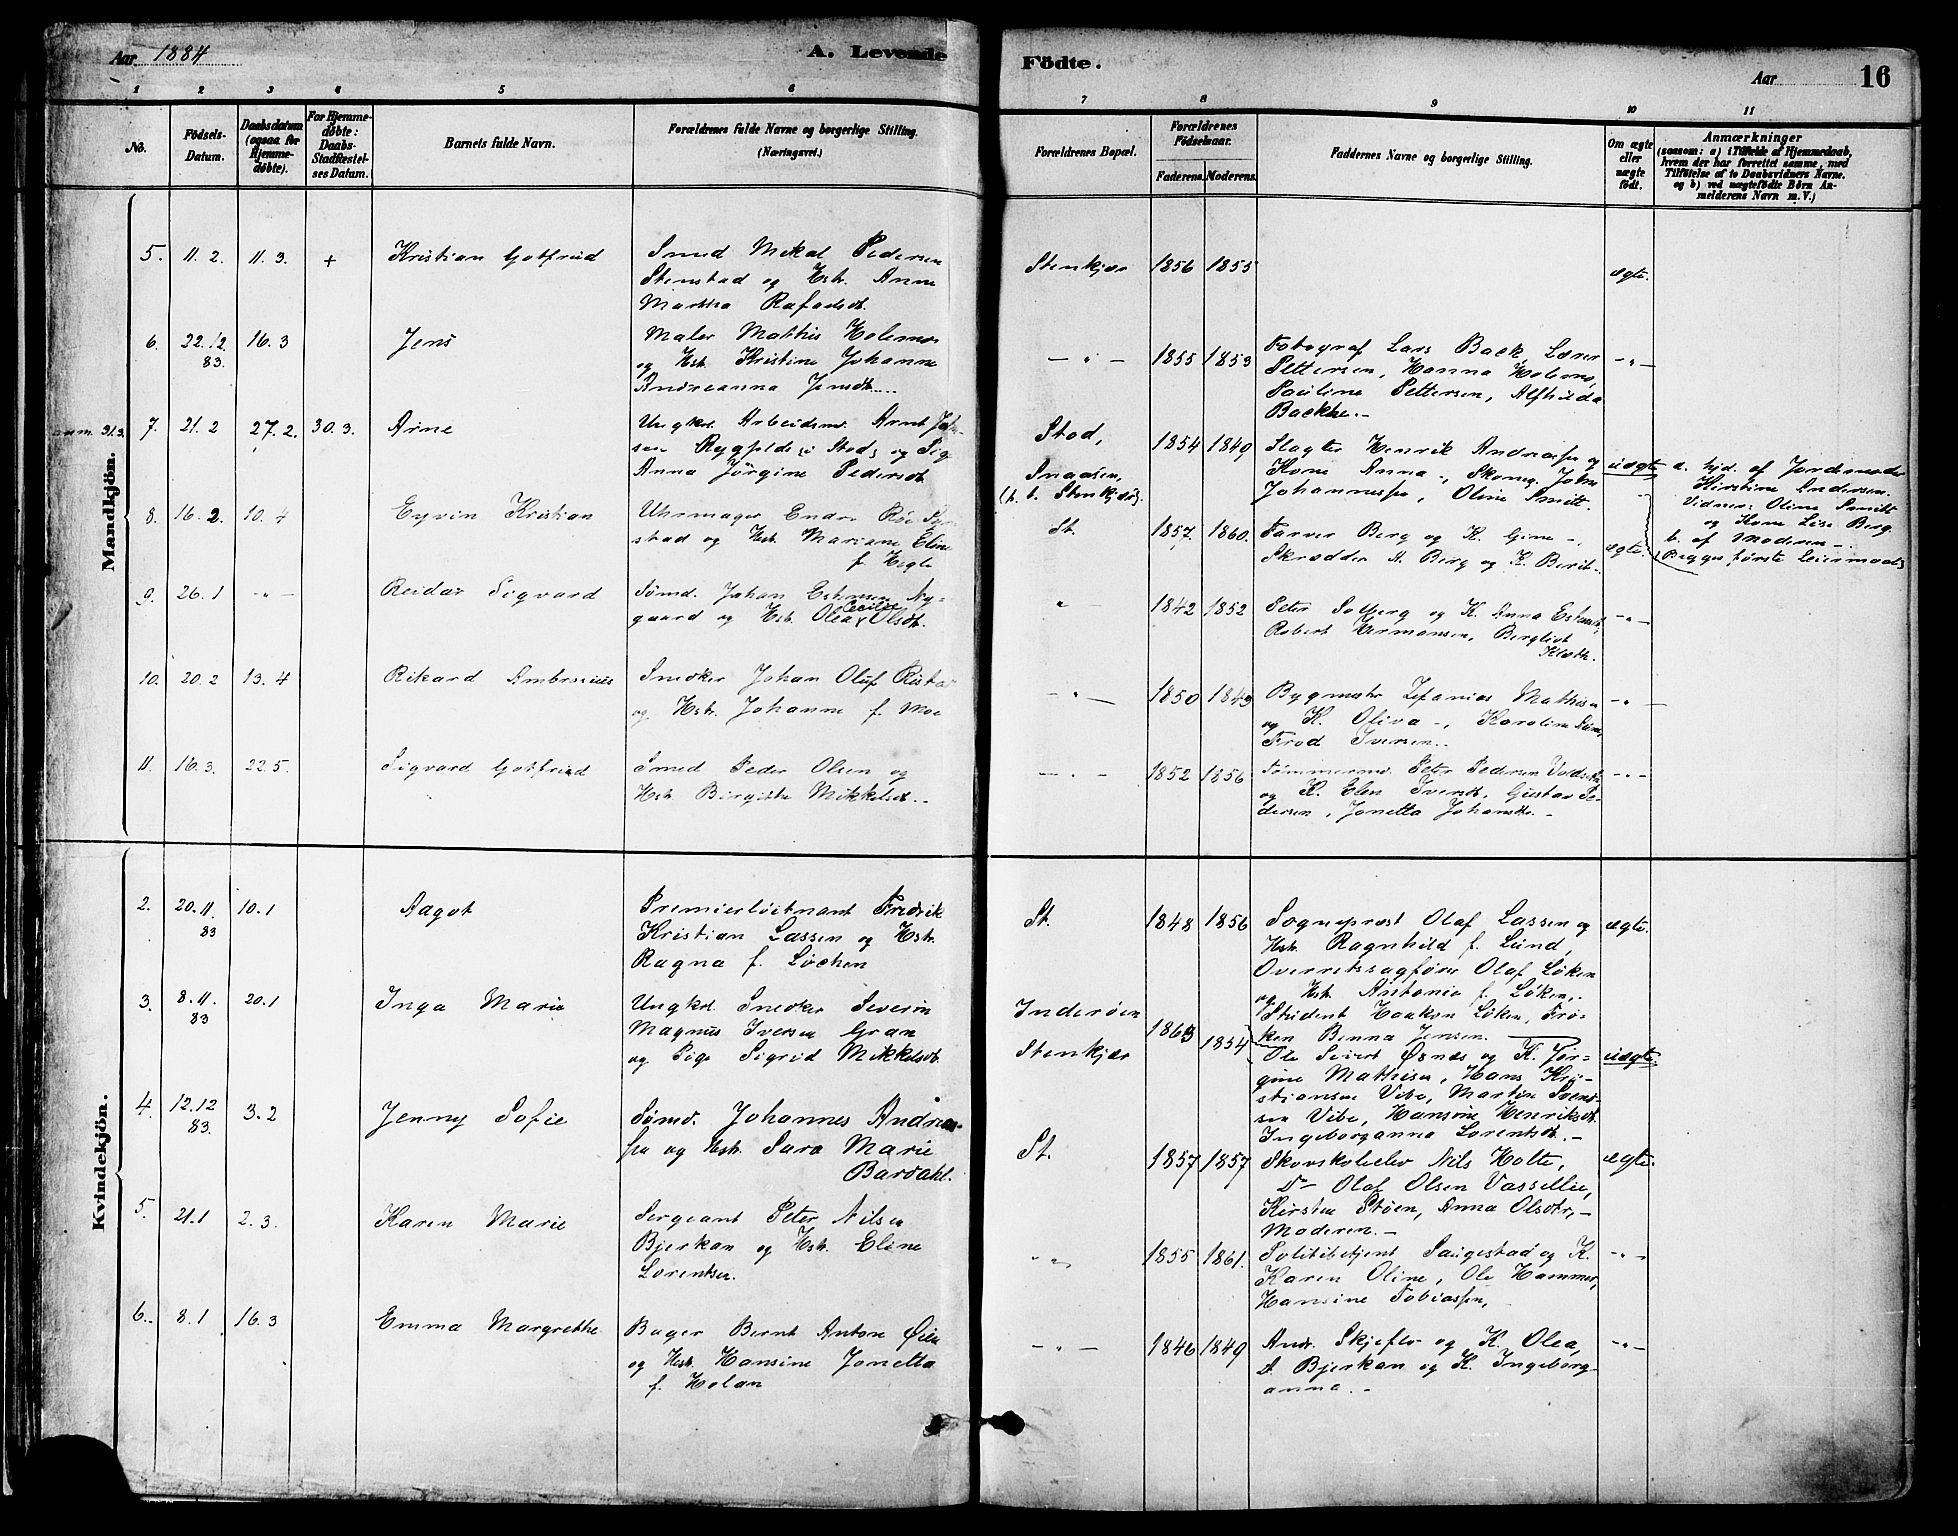 Aar 1884
A. Levende Födte.
Aar
16
1 2 3 4 5 6 7 8 9 10 11
No.
Födsels-Datum.
Daabsdatum (ogsaa for Hjemme-döbte).
For Hjemme-döbte: Daabs-Stadfæstel-ses Datum.
Barnets fulde Navn.
Forældrenes fulde Navne og borgerlige Stilling. (Næringsvei.)
Forældrenes Bopæl.
Forældrenes Födselsaar.
Faderens. Moderens.
Faddernes Navne og borgerlige Stilling.
Om ægte eller uægte født.
Anmærkninger
(saasom: a) i Tilfælde af Hjemmedaab,
hvem der har forrettet samme, med
Tilföielse af to Daabsvidners Navne.
og b) ved uægtefödte Börn An-
melderens Navn m. V.)
Mandkjön.
5. 11.2. 11.3. + Kristian Gotfried
Smed Mikal Pedersen
Stenstad og Hstr. Anne
Martha Rafaelsdt.
Stenkjær 1856 1855
ægte.
6. 22.12 83. 16.3 Jens
Maler Mathis Holemo
og Hstr. Kristine Johanne
Andreanna Jensdt.
— " — 1855 1853
Fotograf Lars Back, Lærer
Pettersen, Hanna Holemo,
Pauline Pettersen, Alfhilda
Backhe. —
— " —
7. 21.2 27.2. 30.3. Arne
Ungkl. Arbeidsm. Arnt Joh-
sen Rygfjeldet i Stod, og Pig
Anna Jørgine Pedersdt.
Stod,
Snaasen,
(t. b. Stenkjær).
1854 1849
Slagter Henrik Andreasse og
Kone Anna —, Skomg. Johs
Johannesse, Oline Smitt.
uægte
a. hjd. af Jordemoder
Kirstine Andersen.
Vidner: Oline Smitt
og Kone Lise Berg.
b. af Moderen —.
Begges første Leiermaal
8. 16.2. 10.4 Eyvin Kristian
Uhrmager Endre Røe
stad og Hstr. Mariane Eline
f. Hegle
St. 1857. 1860.
Farver Berg og K. Gine —,
Skrædder A. Berg og K. Berit —.
ægte.
9. 26.1 — " — Reidar Sigvard
Sømd. Johan Estensen Ny-
gaard og Hstr. Olea Cecilie Olsdt.
" — 1842 1852
Peter Solberg og K. Anna
Robert Hermansen, Bergliot
Kleth.
— " —
10. 20.2 13.4 Rikard Ambrosius
Snedker Johan Oluf Ristad
og Hstr. Johanne f. Moe
— " — 1850 1849
Bygmestr. Zefanias Mathisen
og K. Oliva —, Karoline
Frod Iversen.
— " —
11. 16.3. 22.5. Sigvard Gotfried
Smed Peder Olsen og
Hstr. Birgitte Mikkelsdt. —
— " — 1852 1856
Tømmermd. Peter Pedersen
og K. Elen Iversdt., Gustav Pe-
dersen, Jonetta Johansdtr. —
— " —
Kvindekjön.
2. 20.11. 83 10.1 Aagot
Premierløitnant Fredrik
Kristian Lassen og Hstr.
Ragna f. Løchen
St. 1848 1856
Sogneprest Olaf Lassen og
Hstr. Ragnhild f. Lund,
Overretssagfører Olaf Løken
og Hstr. Antonie f. Løken,
Student Haakon Løken, Frø-
ken Benna Jensen.
ægte.
3. 8.11. 83 20.1 Inga Marie
Ungkl. Snedker Severin
Magnus Iversen Gran
og Pige Sigrid Mikkelsdt.
Inderøen
Stenkjær
1863 1854
Ole Sivert Øsnæs og K. Jør-
gine Mathisen, Hans Kri-
stiansen Vibe, Martin Svend-
sen Vibe, Hansine Henriksdt.
Ingeborganna Lorentsdt. —
uægte.
4. 12.12 83. 3.2 Jenny Sofie
Sømd. Johannes Andreas-
sen og Hstr. Sara Marie
Bardahl.
St. 1857 1857
Skovskoleelev Nils Holte,
Do Olaf Olsen Vassellie,
Kirsten Støen, Anna Olsdtr, —
Moderen. —
ægte.
5. 21.1 2.3. Karen Marie
Sergeant Peter Nilsen
Bjerkan og Hstr. Eline
Lorentsen.
" " 1855 1861.
Politibetjent Saugestad og K.
Karen Oline, Ole Hammer,
Hansine Tobiassen,
— " —
6. 8.1 16.3 Emma Margrethe
Bager Bernt Anton Øien
og Hstr. Hansine Jonetta
f. Holan
— " — 1846 1849
Andr. Skjeflo og K. Olea,
A. Bjerkan og K. Ingeborg-
anna. —
— " —